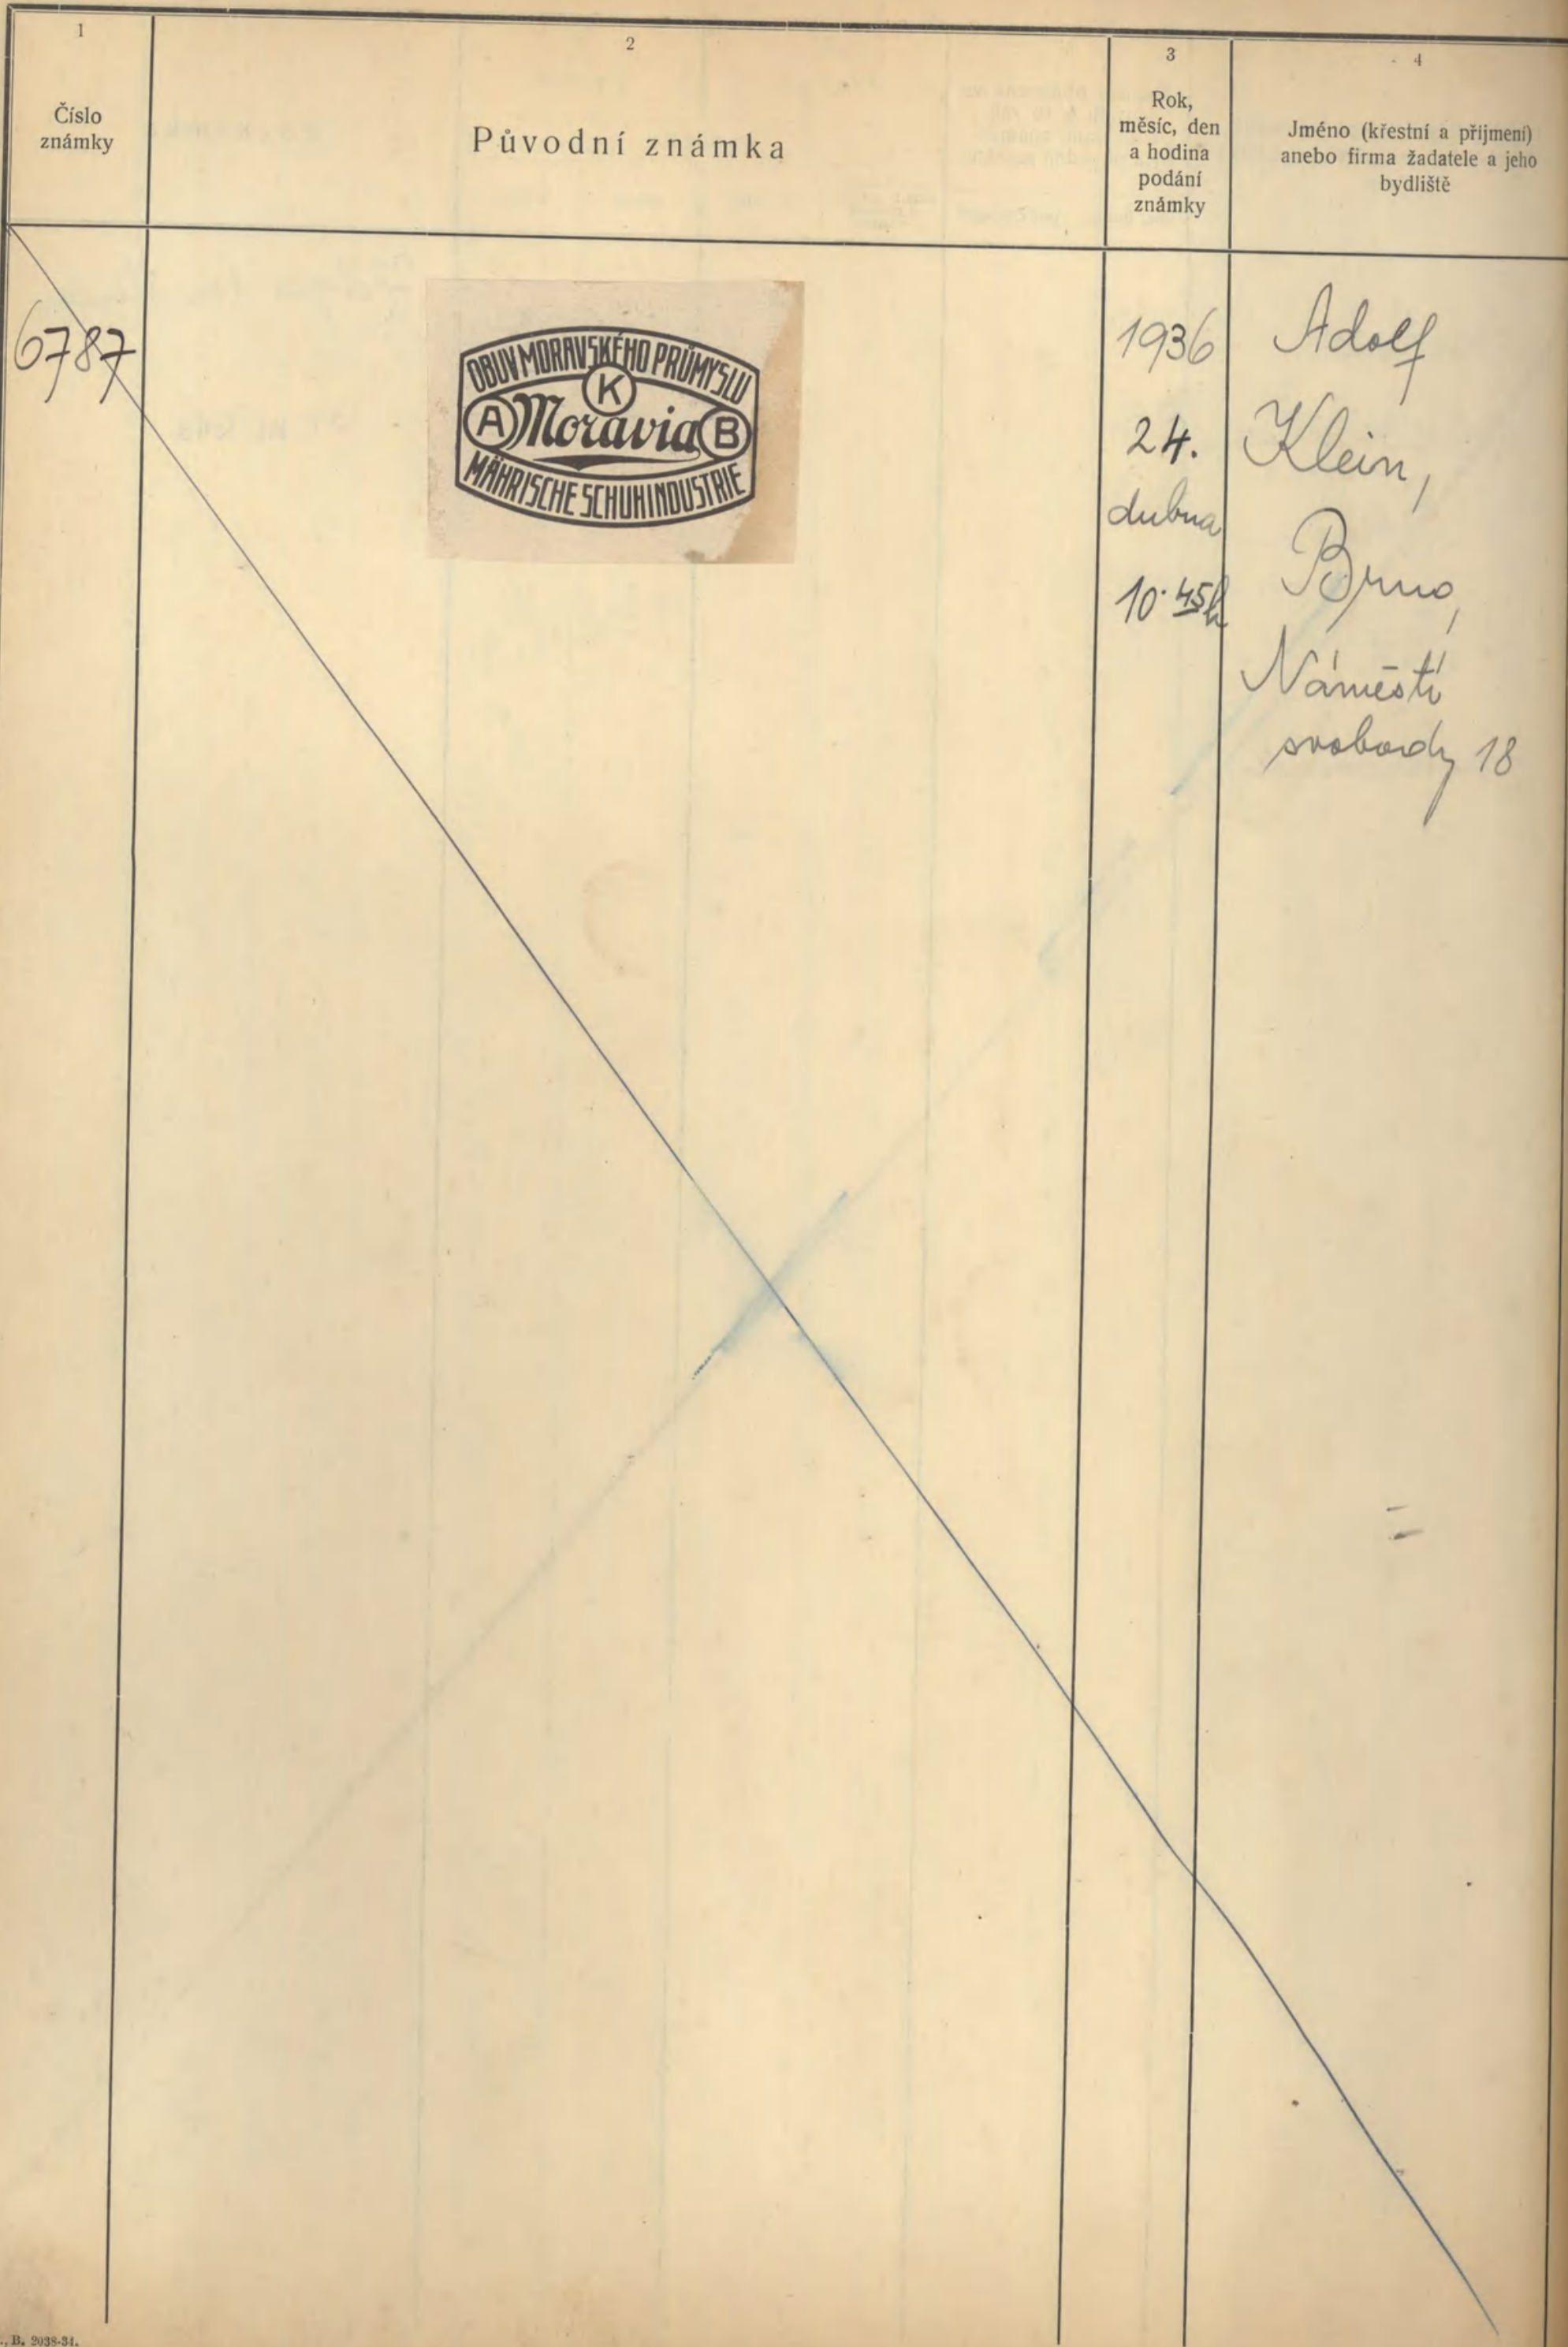 1
Číslo
známky
2
Původní známka
3
Rok,
měsíc, den
a hodina
podání
známky
4
Jméno (křestní a příjmení)
anebo firma žadatele a jeho
bydliště
6787
OBUV MORAVSKÉHO PRŮMYSLU
K
A Moravia B
MÄHRISCHE SCHUHINDUSTRIE
1936
24.
dubna
10·45h
Adolf
Klein,
Brno,
Náměstí
svobody 18
B. 2038-34.